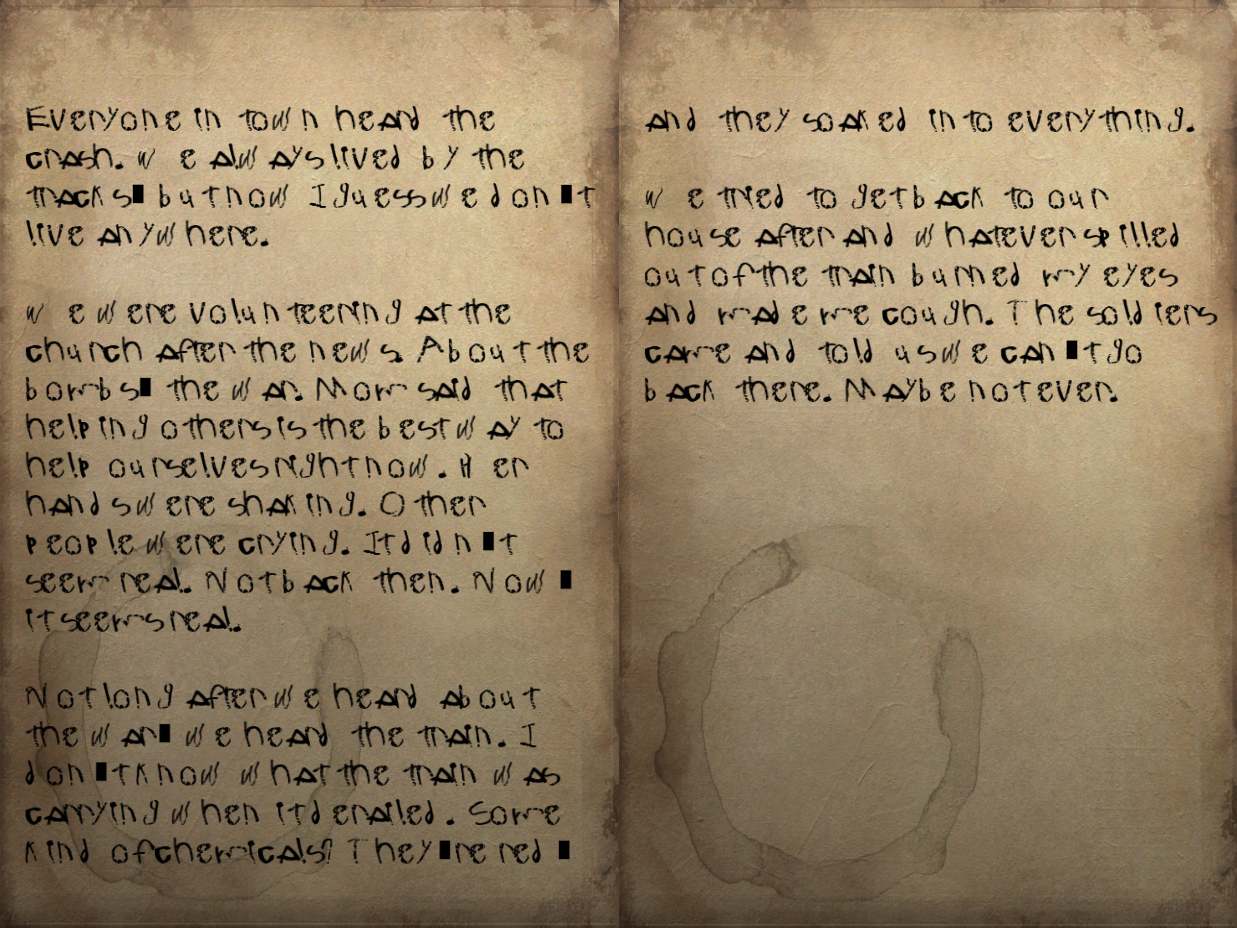 Everyone in town heard the
crash. We always lived by the
tracks▮ but now I guess we don▮t
live anywhere.
We were volunteering at the
church after the news. About the
bombs▮ the war. Mom said that
helping others is the best way to
help ourselves right now. Her
hands were shaking. Other
people were crying. It didn▮t
seem real. Not back then. Now▮
it seems real.
Not long after we heard about
the war▮ we heard the train. I
don▮t know what the train was
carrying when it derailed. Some
kind of chemicals? They▮re red▮
and they soaked into everything.
We tried to get back to our
house after and whatever spilled
out of the train burned my eyes
and made me cough. The soldiers
came and told us we can▮t go
back there. Maybe not ever.